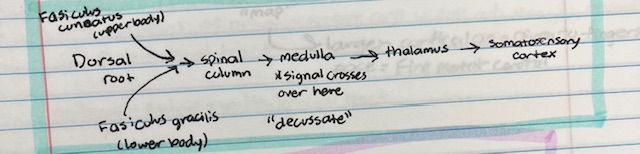 Fasiculus
cuneatus
(upper body)
Dorsal
root
→ spinal
column
→ medulla
*signal crosses
over here
"decussate"
→ thalamus
→ somatosensory
cortex
Fasiculus gracilis
(lower body)